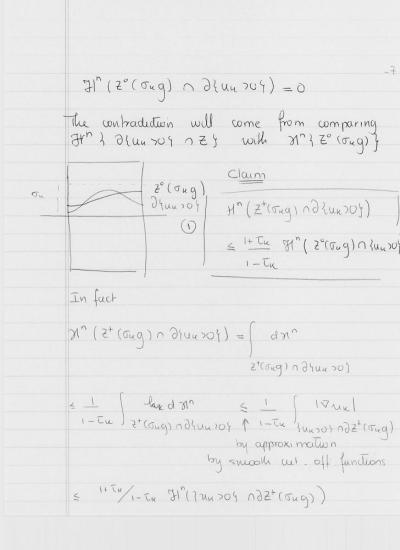 -7
ℋⁿ(Z⁰(σₖg) ∩ ∂{uₖ>0}) = 0
The contradiction will come from comparing
ℋⁿ{∂{uₖ>0} ∩ Z} with ℋⁿ{Z⁰(σₖg)}
σₖ
Z⁰(σₖg)
∂{uₖ>0}
①
Claim
ℋⁿ(Z⁺(σₖg) ∩ ∂{uₖ>0})
≤ (1+τₖ)/(1-τₖ) ℋⁿ(Z⁰(σₖg) ∩ {uₖ>0}
In fact
ℋⁿ(Z⁺(σₖg) ∩ ∂{uₖ>0}) = ∫_{Z⁺(σₖg) ∩ ∂{uₖ>0}} dℋⁿ
≤ 1/(1-τₖ) ∫_{Z⁺(σₖg) ∩ ∂{uₖ>0}} dℋⁿ ≤ 1/(1-τₖ) ∫_{{uₖ>0} ∩ ∂Z⁺(σₖg)} |∇uₖ|
↑
by approximation
by smooth cut-off functions
≤ 1+τₖ/1-τₖ ℋⁿ({uₖ>0} ∩ ∂Z⁺(σₖg))